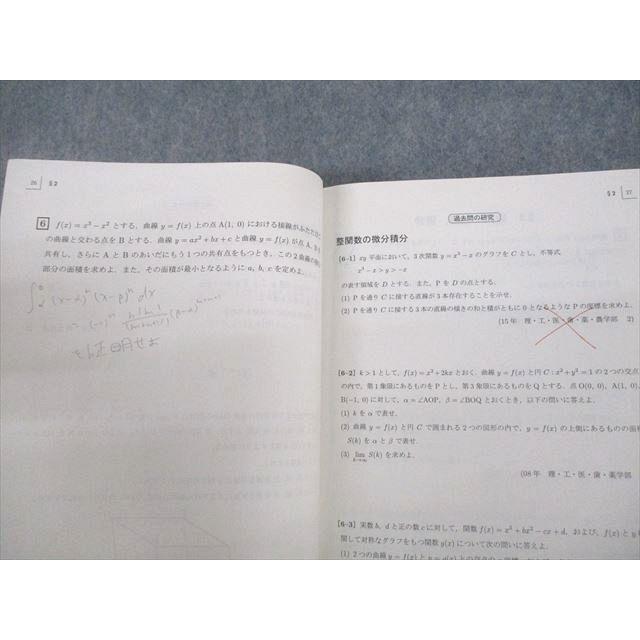 26 §2
6 f(x) = x³ − x² とする. 曲線 y = f(x) 上の点 A(1, 0) における接線がふたたび
の曲線と交わる点を B とする. 曲線 y = ax² + bx + c と曲線 y = f(x) が点 A,
共有し, さらに A と B のあいだにもう1つの共有点をもつとき, この2曲線の
部分の面積を求めよ. また, その面積が最小となるように a, b, c を定めよ.
を証明せよ
§2 27
過去問の研究
整関数の微分積分
[6-1] xy 平面において, 3次関数 y = x³ − x のグラフを C とし, 不等式
x³ − x > y > −x
の表す領域を D とする. また, P を D の点とする.
(1) P を通り C に接する直線が3本存在することを示せ.
(2) P を通り C に接する3本の直線の傾きの和と積がともに0となるような P の座標を求めよ.
(15年 理・工・医・歯・薬・農学部 2)
[6-2] k > 1 として, f(x) = x² + 2kx とおく. 曲線 y = f(x) と円 C : x² + y² = 1 の2つの交点
の内で, 第1象限にあるものを P とし, 第3象限にあるものを Q とする. 点 O(0, 0), A(1, 0),
B(−1, 0) に対して, α = ∠AOP, β = ∠BOQ とおくとき, 以下の問いに答えよ.
(1) k を α で表せ.
(2) 曲線 y = f(x) と円 C で囲まれる2つの図形の内で, y = f(x) の上側にあるものの面積
S(k) を α と β で表せ.
(3) lim k→∞ S(k) を求めよ.
(08年 理・工・医・歯・薬学部
[6-3] 実数 b, d と正の数 c に対して, 関数 f(x) = x³ + bx² − cx + d, および, f(x) と y
関して対称なグラフをもつ関数 g(x) について次の問いに答えよ.
(1) 2つの曲線 y = f(x) と y = g(x) との